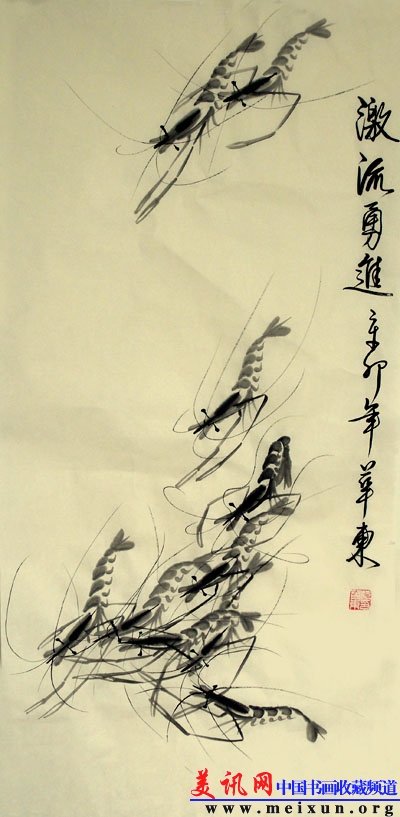 激流勇進辛卯年華東
美讯网中国书画收藏频道
www.meixun.org